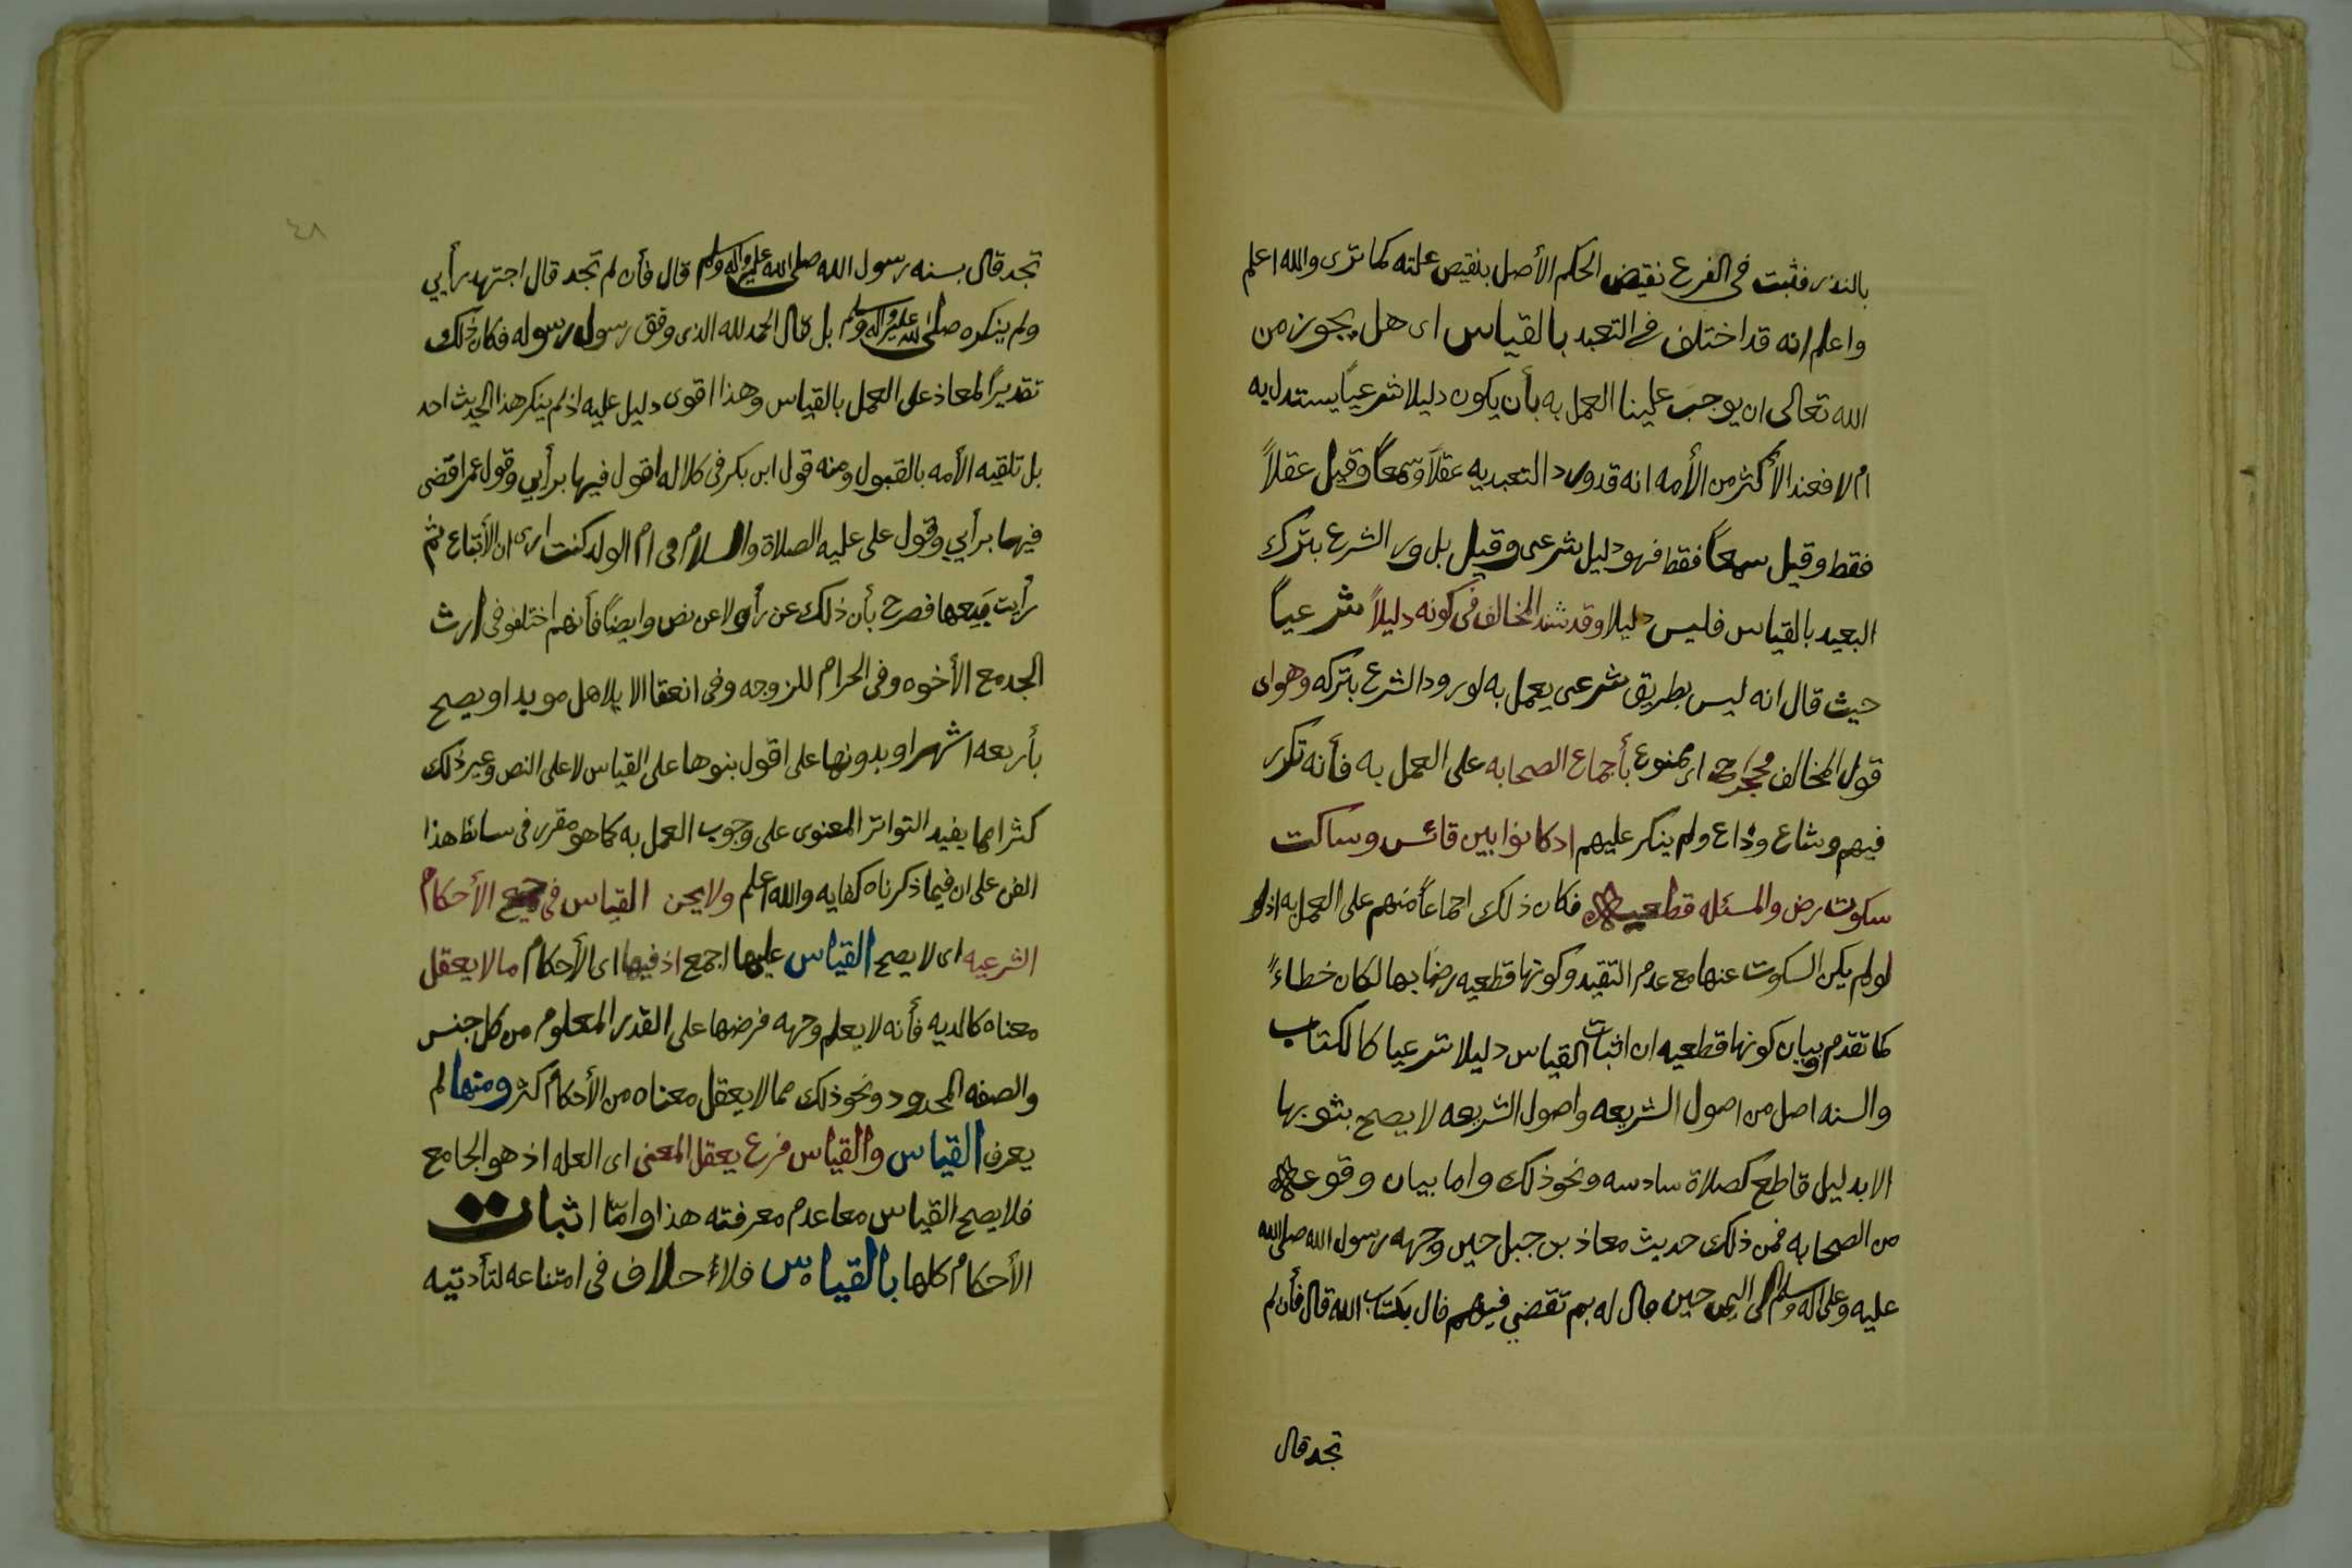 بالنذر فثبت في الفرع نقيض الحكم الأصل بنقيض علته كما ترى والله اعلم
واعلم انه قد اختلف في التعبد بالقياس اى هل يجوز من
الله تعالى ان يوجب علينا العمل به بأن يكون دليلا شرعياً يستدل به
ام لا فعند الأكثر من الأمه انه قد ورد التعبد به عقلاً وسمعاً وقيل عقلاً
فقط وقيل سمعاً فقط فهو دليل شرعى وقيل بل ورد الشرع بترك
البعيد بالقياس فليس دليلا وقد شذ المخالف في كونه دليلاً شرعياً
حيث قال انه ليس بطريق شرعى يعمل به لورود الشرع بتركه وهو اى
قول المخالف محجوج اى ممنوع بأجماع الصحابه على العمل به فأنه تكرر
فيهم وشاع وذاع ولم ينكر عليهم اذ كانوا بين قائس وساكت
سكوت رض والمسئله قطعيه فكان ذلك اجماعاً منهم على العمل به اذ
لو لم يكن السكوت عنها مع عدم التقيد وكونها قطعيه رضا بها لكان خطاءً
كما تقدم وبيان كونها قطعيه ان اثبات القياس دليلا شرعيا كالكتاب
والسنه اصل من اصول الشريعه واصول الشريعه لا يصح بثوبها
الا بدليل قاطع كصلاة سادسه ونحو ذلك واما بيان وقوعه
من الصحابه فمن ذلك حديث معاذ بن جبل حين وجهه رسول الله صلى الله
عليه وعلى اله وسلم الى اليمن حين قال له بم تقضي فيهم قال بكتاب الله قال فأن لم
تجد قال
٤٨
تجد قال بسنه رسول الله صلى الله عليه واله وسلم قال فأن لم تجد قال اجتهد رأيي
ولم ينكره صلى الله عليه واله وسلم بل قال الحمد لله الذى وفق رسول رسوله فكان ذلك
تقديراً لمعاذ على العمل بالقياس وهذا اقوى دليل عليه اذ لم ينكر هذا الحديث احد
بل تلقيه الأمه بالقبول ومنه قول ابى بكر في كلاله اقول فيها برأيي وقول عمر اقضى
فيها برأيي وقول على عليه الصلاة والسلام في ام الولد كنت ارى ان لاتباع ثم
رأيت بيعها فصرح بأن ذلك عن رأى ولا عن نص وايضاً فأنهم اختلفو في ارث
الجد مع الأخوه وفي الحرام للزوجه وفى انعقا الايلا هل موبدا ويصح
بأربعه اشهر او بدونها على اقول بنوها على القياس لا على النص وغير ذلك
كثرا مما يفيد التواتر المعنوى على وجوب العمل به كما هو مقرر في سائط هذا
الفن على ان فيما ذكرناه كفايه والله اعلم ولا يجن القياس في جميع الأحكام
الشرعيه اى لا يصح القياس عليها اجمع اذ فيها اى الأحكام ما لا يعقل
معناه كالديه فأنه لا يعلم وجهه فرضها على القدر المعلوم من كل جنس
والصفه المحدود ونحو ذلك مما لا يعقل معناه من الأحكام كثر ومنها لم
يعرف القياس والقياس فرع يعقل المعنى اى العله اذ هو الجامع
فلا يصح القياس معا عدم معرفته هذا وامّا اثبات
الأحكام كلها بالقياس فلا حلاف في امتناعه لتأدتيه